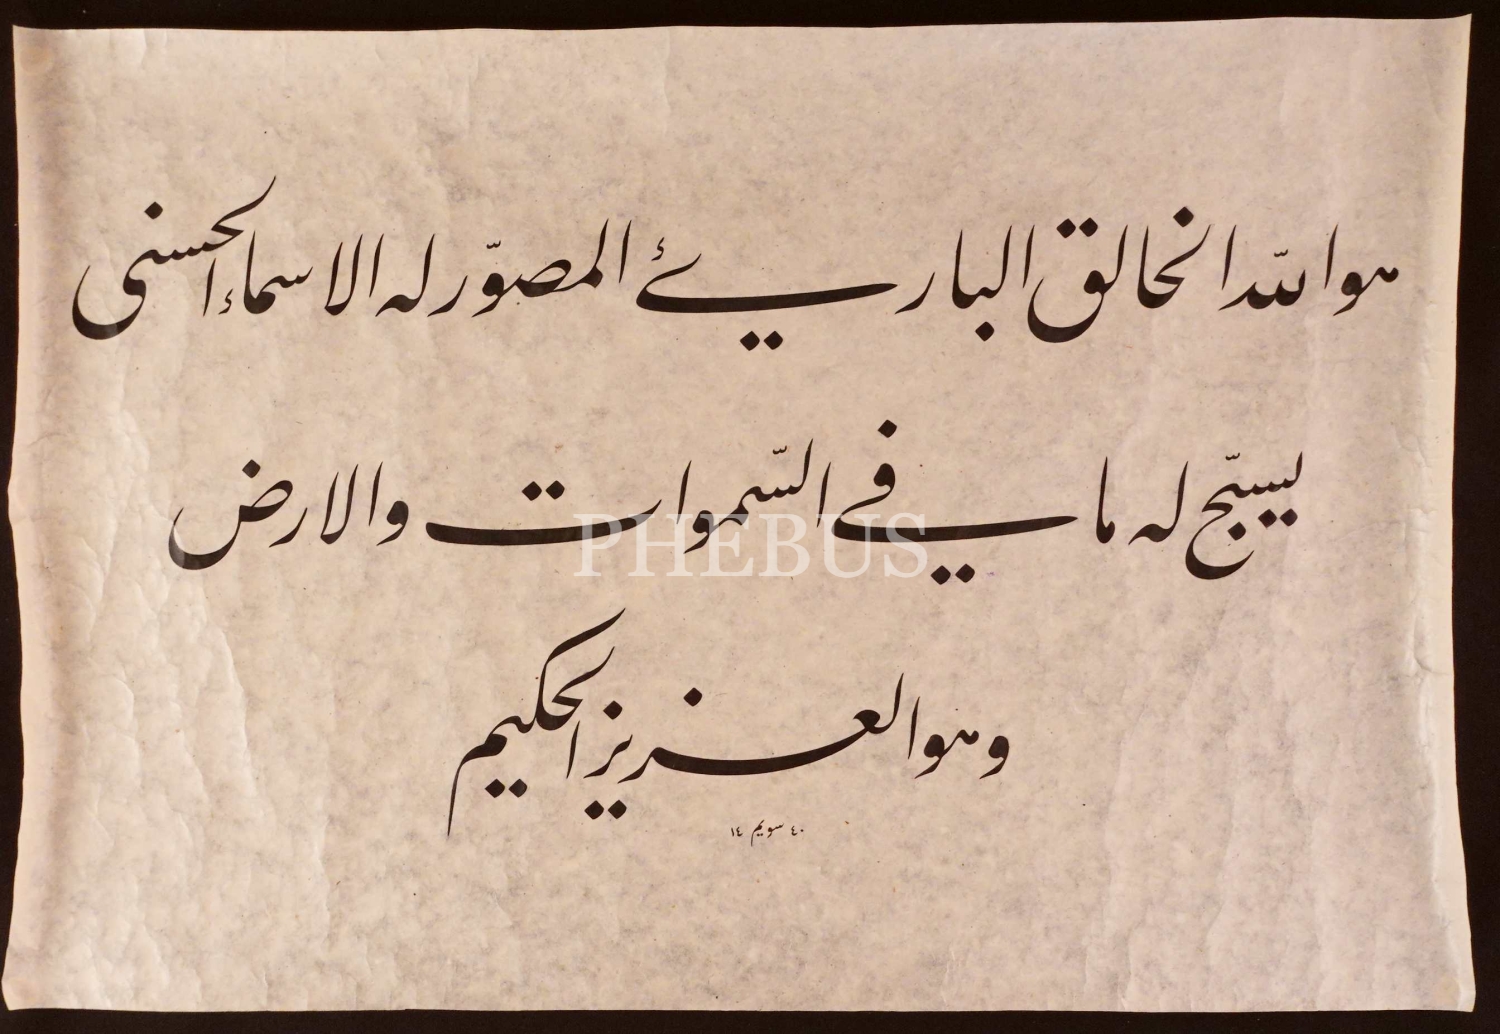 هو الله الخالق البارئ المصوّر له الاسماء الحسنى
يسبّح له ما في السّموات والارض
PHEBUS
وهو العزيز الحكيم
١٤ سويم ٤٠